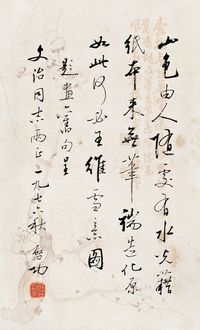 山色由人随变有水以藉
纸本来无笔端造化原
如此何必王维雪里图
题画旧句呈
文治同志两正一九七六秋启功